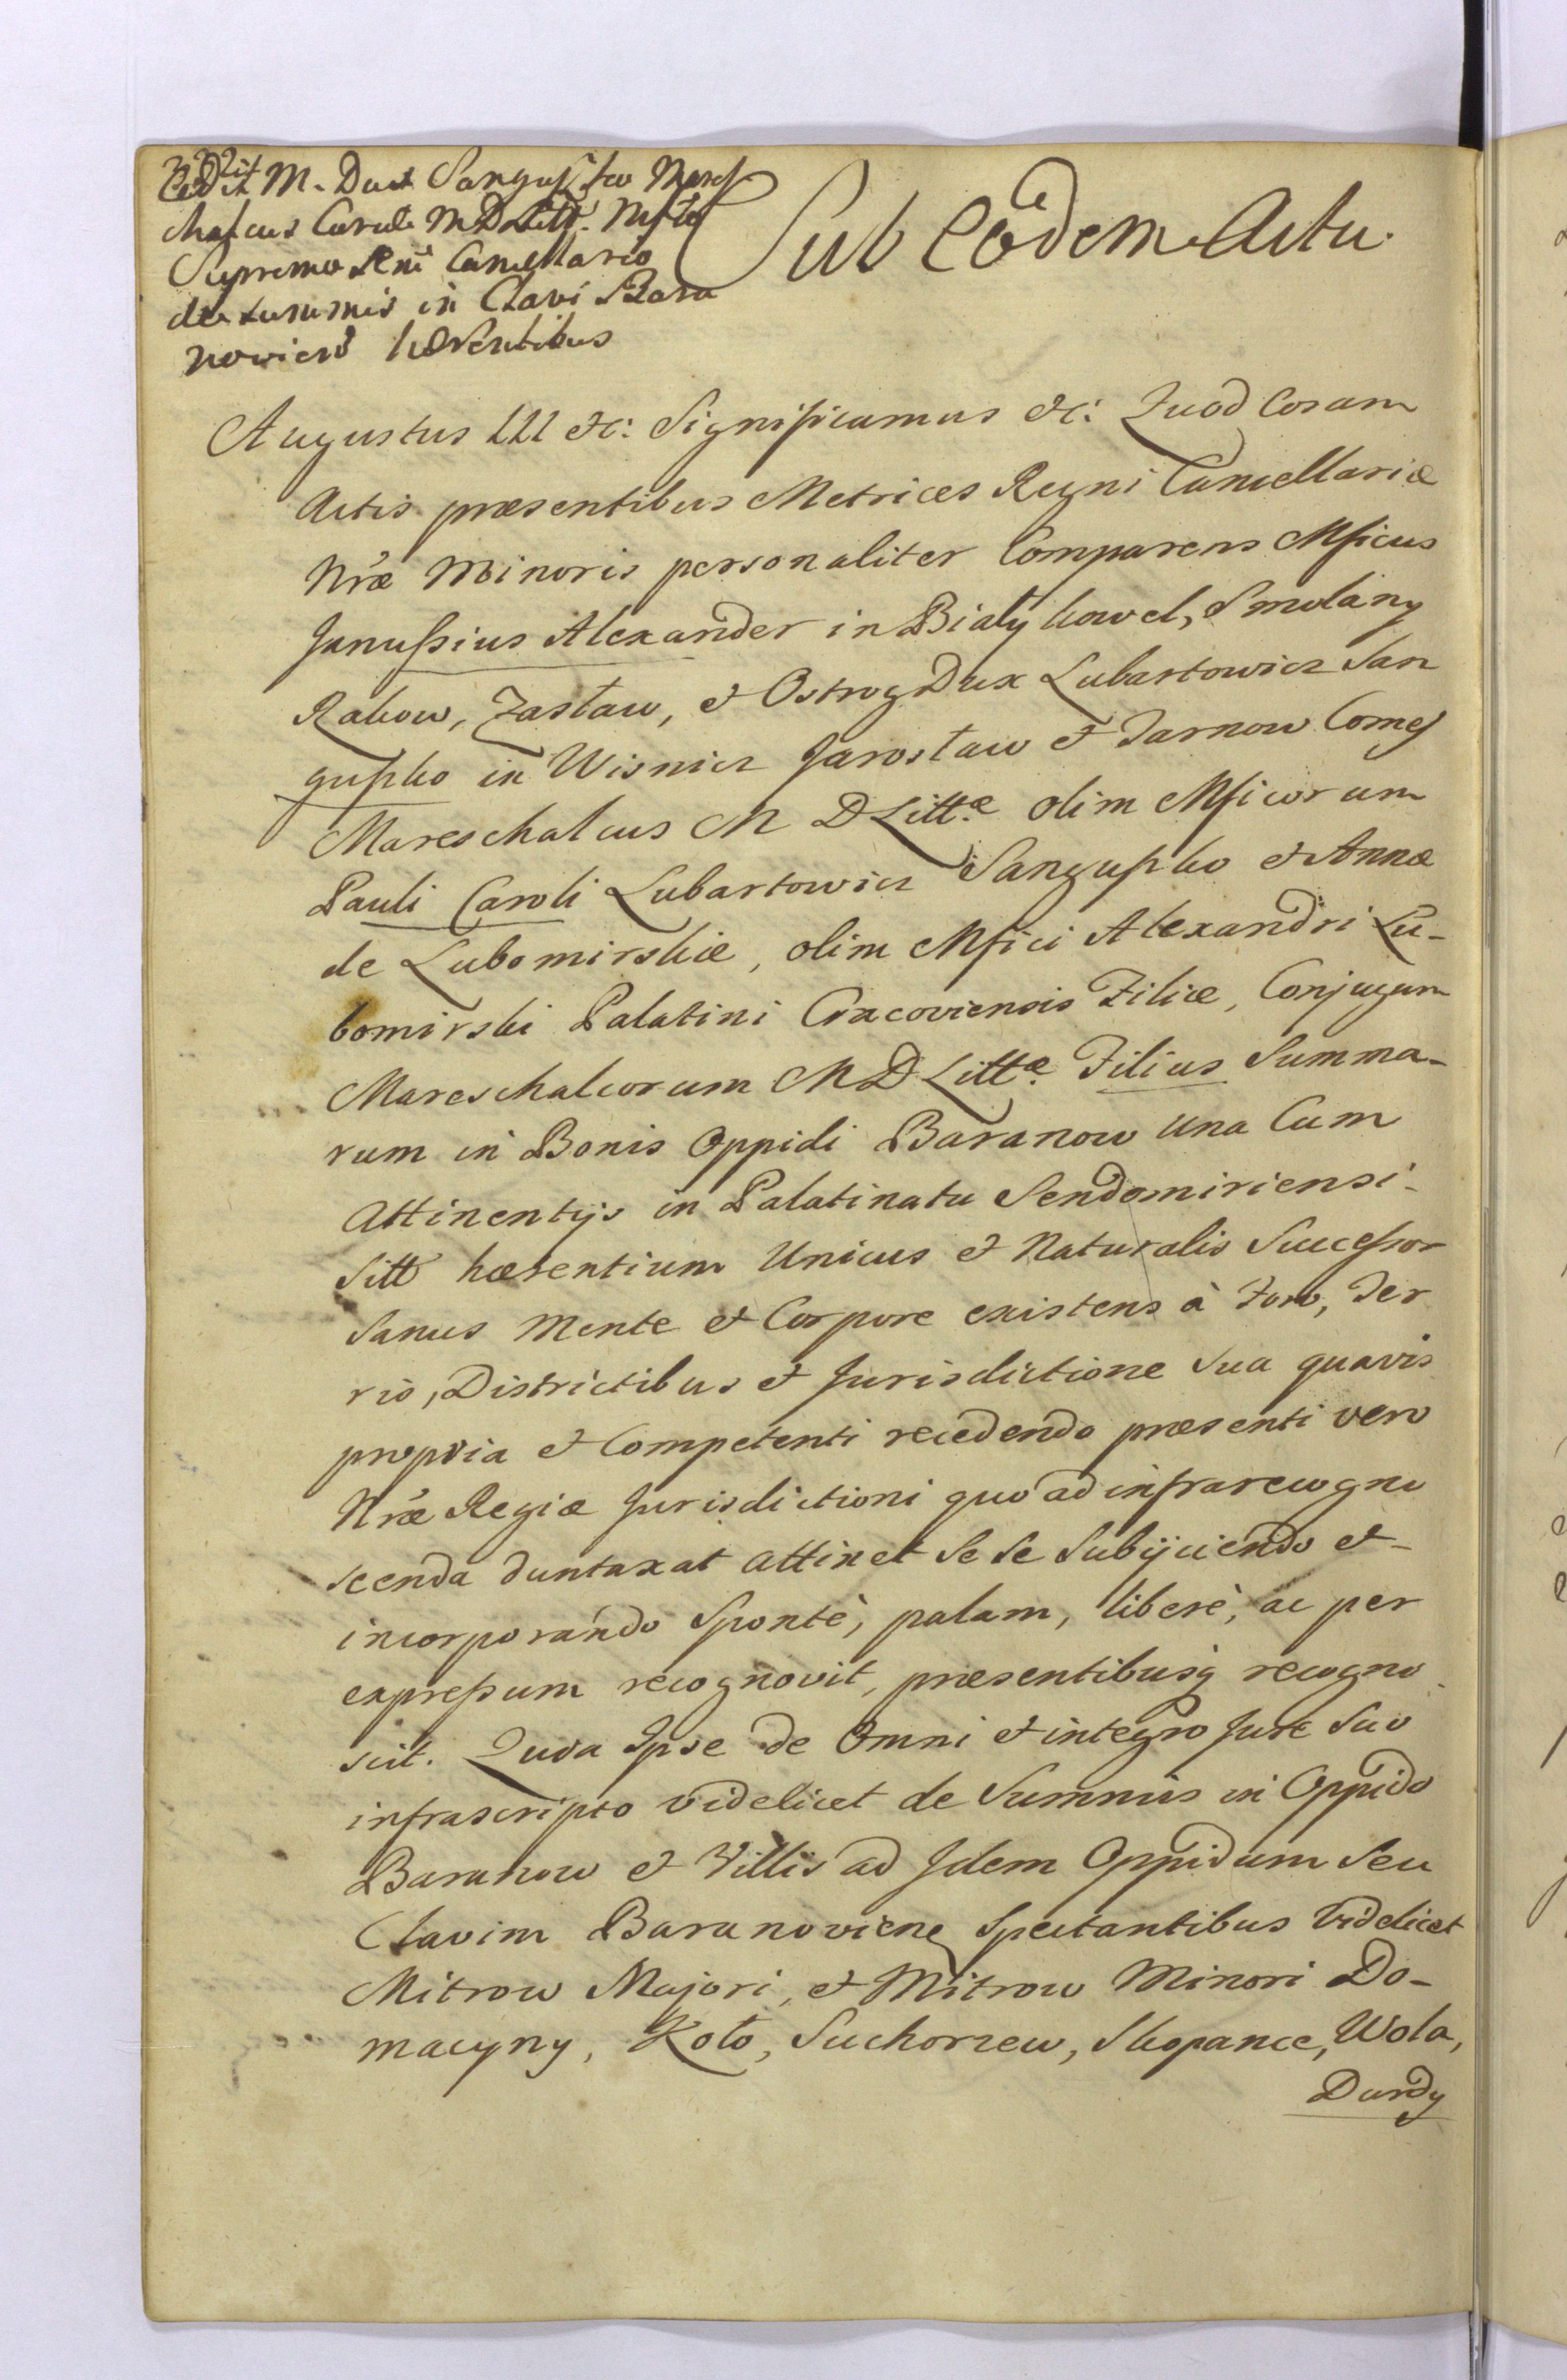 Cedit M. Dux Sangusko Mares
chalcus Curiæ M D Litt. Mfico
Supremo Regni Cancellario
de summis in Clavi Bara
noviens hærentibus
Sub Eôdem Actu.
Augustus III etc: Significamus etc: Quod Coram
Actis præsentibus Metrices Regni Cancellariæ
Nræ Minoris personaliter Comparens Mficus
Janussius Alexander in Biały kowel, Smolany
Rakow, Zasław, et Ostrog Dux Lubartowicz San
gusko in Wisnicz Jarosław et Tarnow Comes
Mareschalcus M D Littæ olim Mficorum
Pauli Caroli Lubartowicz Sangusko et Annæ
de Lubomirskie, olim Mfici Alexandri Lu-
bomirski Palatini Cracoviensis Filiæ, Conjugum
Mareschalcorum M D Littæ Filius Summa-
rum in Bonis Oppidi Baranow una Cum
Attinentijs in Palatinatu Sendomiriensi
Sitt hærentium Unicus et Naturalis Successor
Sanus Mente et Corpore existens à Foro, Ter
rio, Districtibus et Jurisdictione Sua quavis
propria et Competenti recedendo præsenti vero
Nræ Regiæ Jurisdictioni quo ad infrarecogno
scenda duntaxat attinet Se Se Subijciendo et
incorporando Spontè, palam, liberè, ac per
expressum recognovit, præsentibusq recogno
scit. Quia Ipse de Omni et integro Jure Suo
infrascripto videlicet de Summis in Oppido
Baranow et Villis ad Idem Oppidum Seu
Clavim Baranoviens Spectantibus Videlicet
Mitrow Majori, et Mitrow Minori Do-
macyny, Koło, Suchorzew, Skopance, Wola,
Durdy